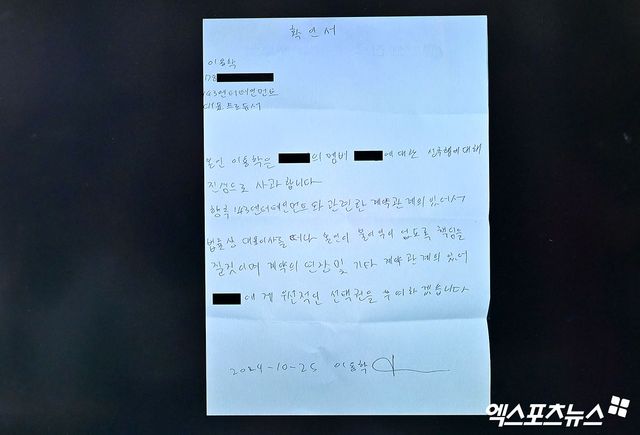 확인서
이용학
178
143엔터테인먼트
대표프로듀서
본인 이용학은 의 멤버 에 대한 성추행에 대해
진심으로 사과합니다
향후 143엔터테인먼트와 관련한 계약관계의 있어서
법률상 대표이사를 떠나 본인이 불이익이 없도록 책임을
질것이며 계약의 연장 및 기타 계약 관계의 있어
에게 우선적인 선택권을 부여하겠습니다
2024-10-25 이용학
엑스포츠뉴스